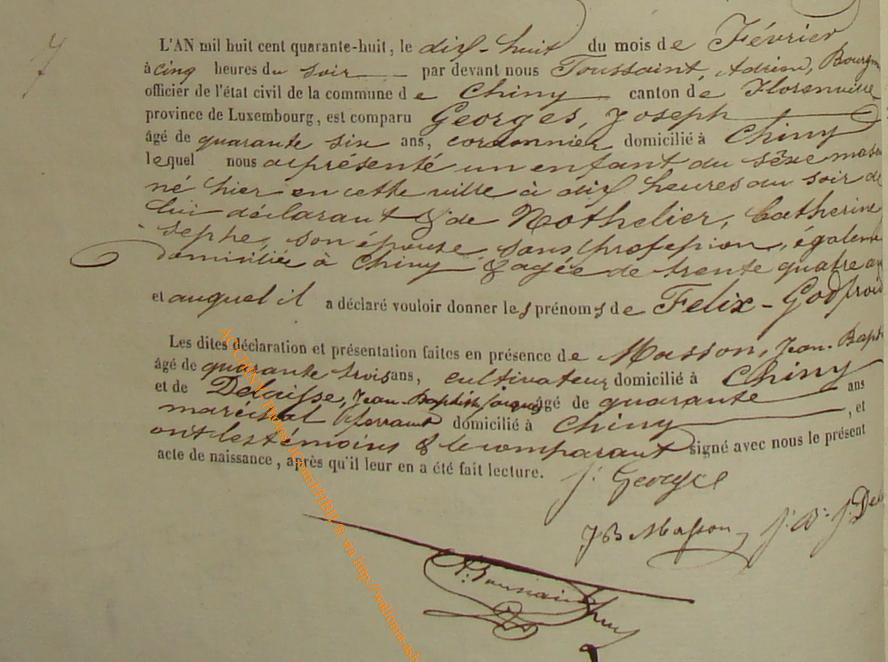 7
L'AN mil huit cent quarante-huit, le dix-huit du mois de Février
à cinq heures du soir par devant nous Toussaint, Adrien, Bourgm
officier de l'état civil de la commune de Chiny canton de Florenville
province de Luxembourg, est comparu Georges, Joseph
âgé de quarante six ans, cordonnier domicilié à Chiny
lequel nous a présenté un enfant du sèxe mascu
né hier en cette ville à dix heures du soir de
lui déclarant & de Nothelier, Catherine
sephe, son épouse, sans profession, égaleme
domiciliée à Chiny, & agée de trente quatre an
et auquel il a déclaré vouloir donner les prénoms de Felix-Godfroid
Les dites déclaration et présentation faites en présence de Masson, Jean-Bapti
âgé de quarante trois ans, cultivateur domicilié à Chiny
et de Delaisse, Jean-Baptiste âgé de quarante ans
maréchal ferrant domicilié à Chiny, et
ont les témoins & le comparant signé avec nous le présent
acte de naissance, après qu'il leur en a été fait lecture.
J. Georges
J B Masson J. B. J. Del
A. Toussaint